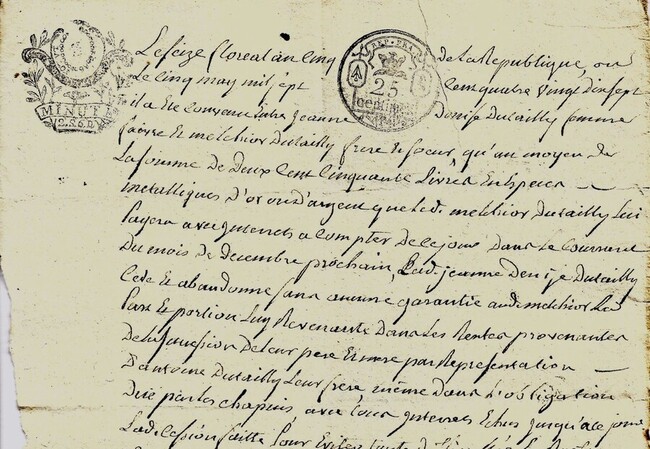 MINUT
2.S.6.D
REP. FRA
25
centimes
Le seize floreal an cinq de la Republique, ou
Le cinq may mil sept cent quatre vingt dix sept
il a Eté convenu Entre jeanne denise Dutailly femme
faivre Et melchior Dutailly frere Et soeur qu'au moyen de
La somme de Deux Cent Cinquante Livres En Especes
metalliques d'or ou d'argent que led. melchior Dutailly lui
payera avec interets a compter de ce jour Dans Le Courant
Du mois de Decembre prochain, Lad. jeanne Denise Dutailly
Cede Et abandonne sans aucune garantie aud. melchior La
part Et portion Luy Revenante Dans Les Rentes provenantes
De la succession de Leur pere Et mere par Representation
D'antoine Dutailly Leur frere même dans L'obligation
Due par les chapuis, avec tous interets Echus jusqu'a ce jour
La de Cession faitte pour Eviter